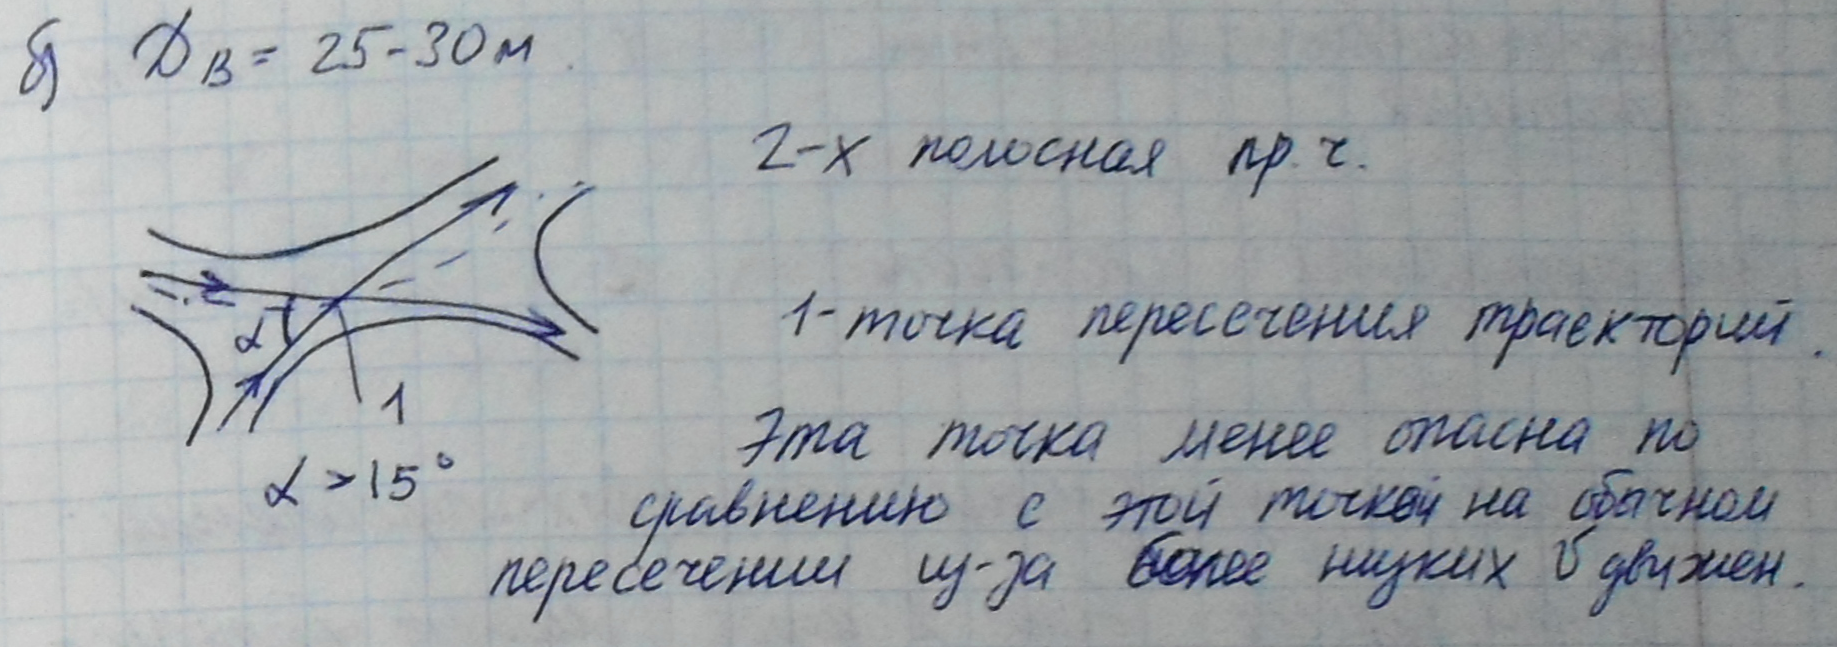 б) Дв = 25-30 м.
2-х полосная пр. ч.
1-точка пересечения траекторий.
α
1
α > 15°
Эта точка менее опасна по
сравнению с этой точкой на обычном
пересечении из-за более низких v движен.